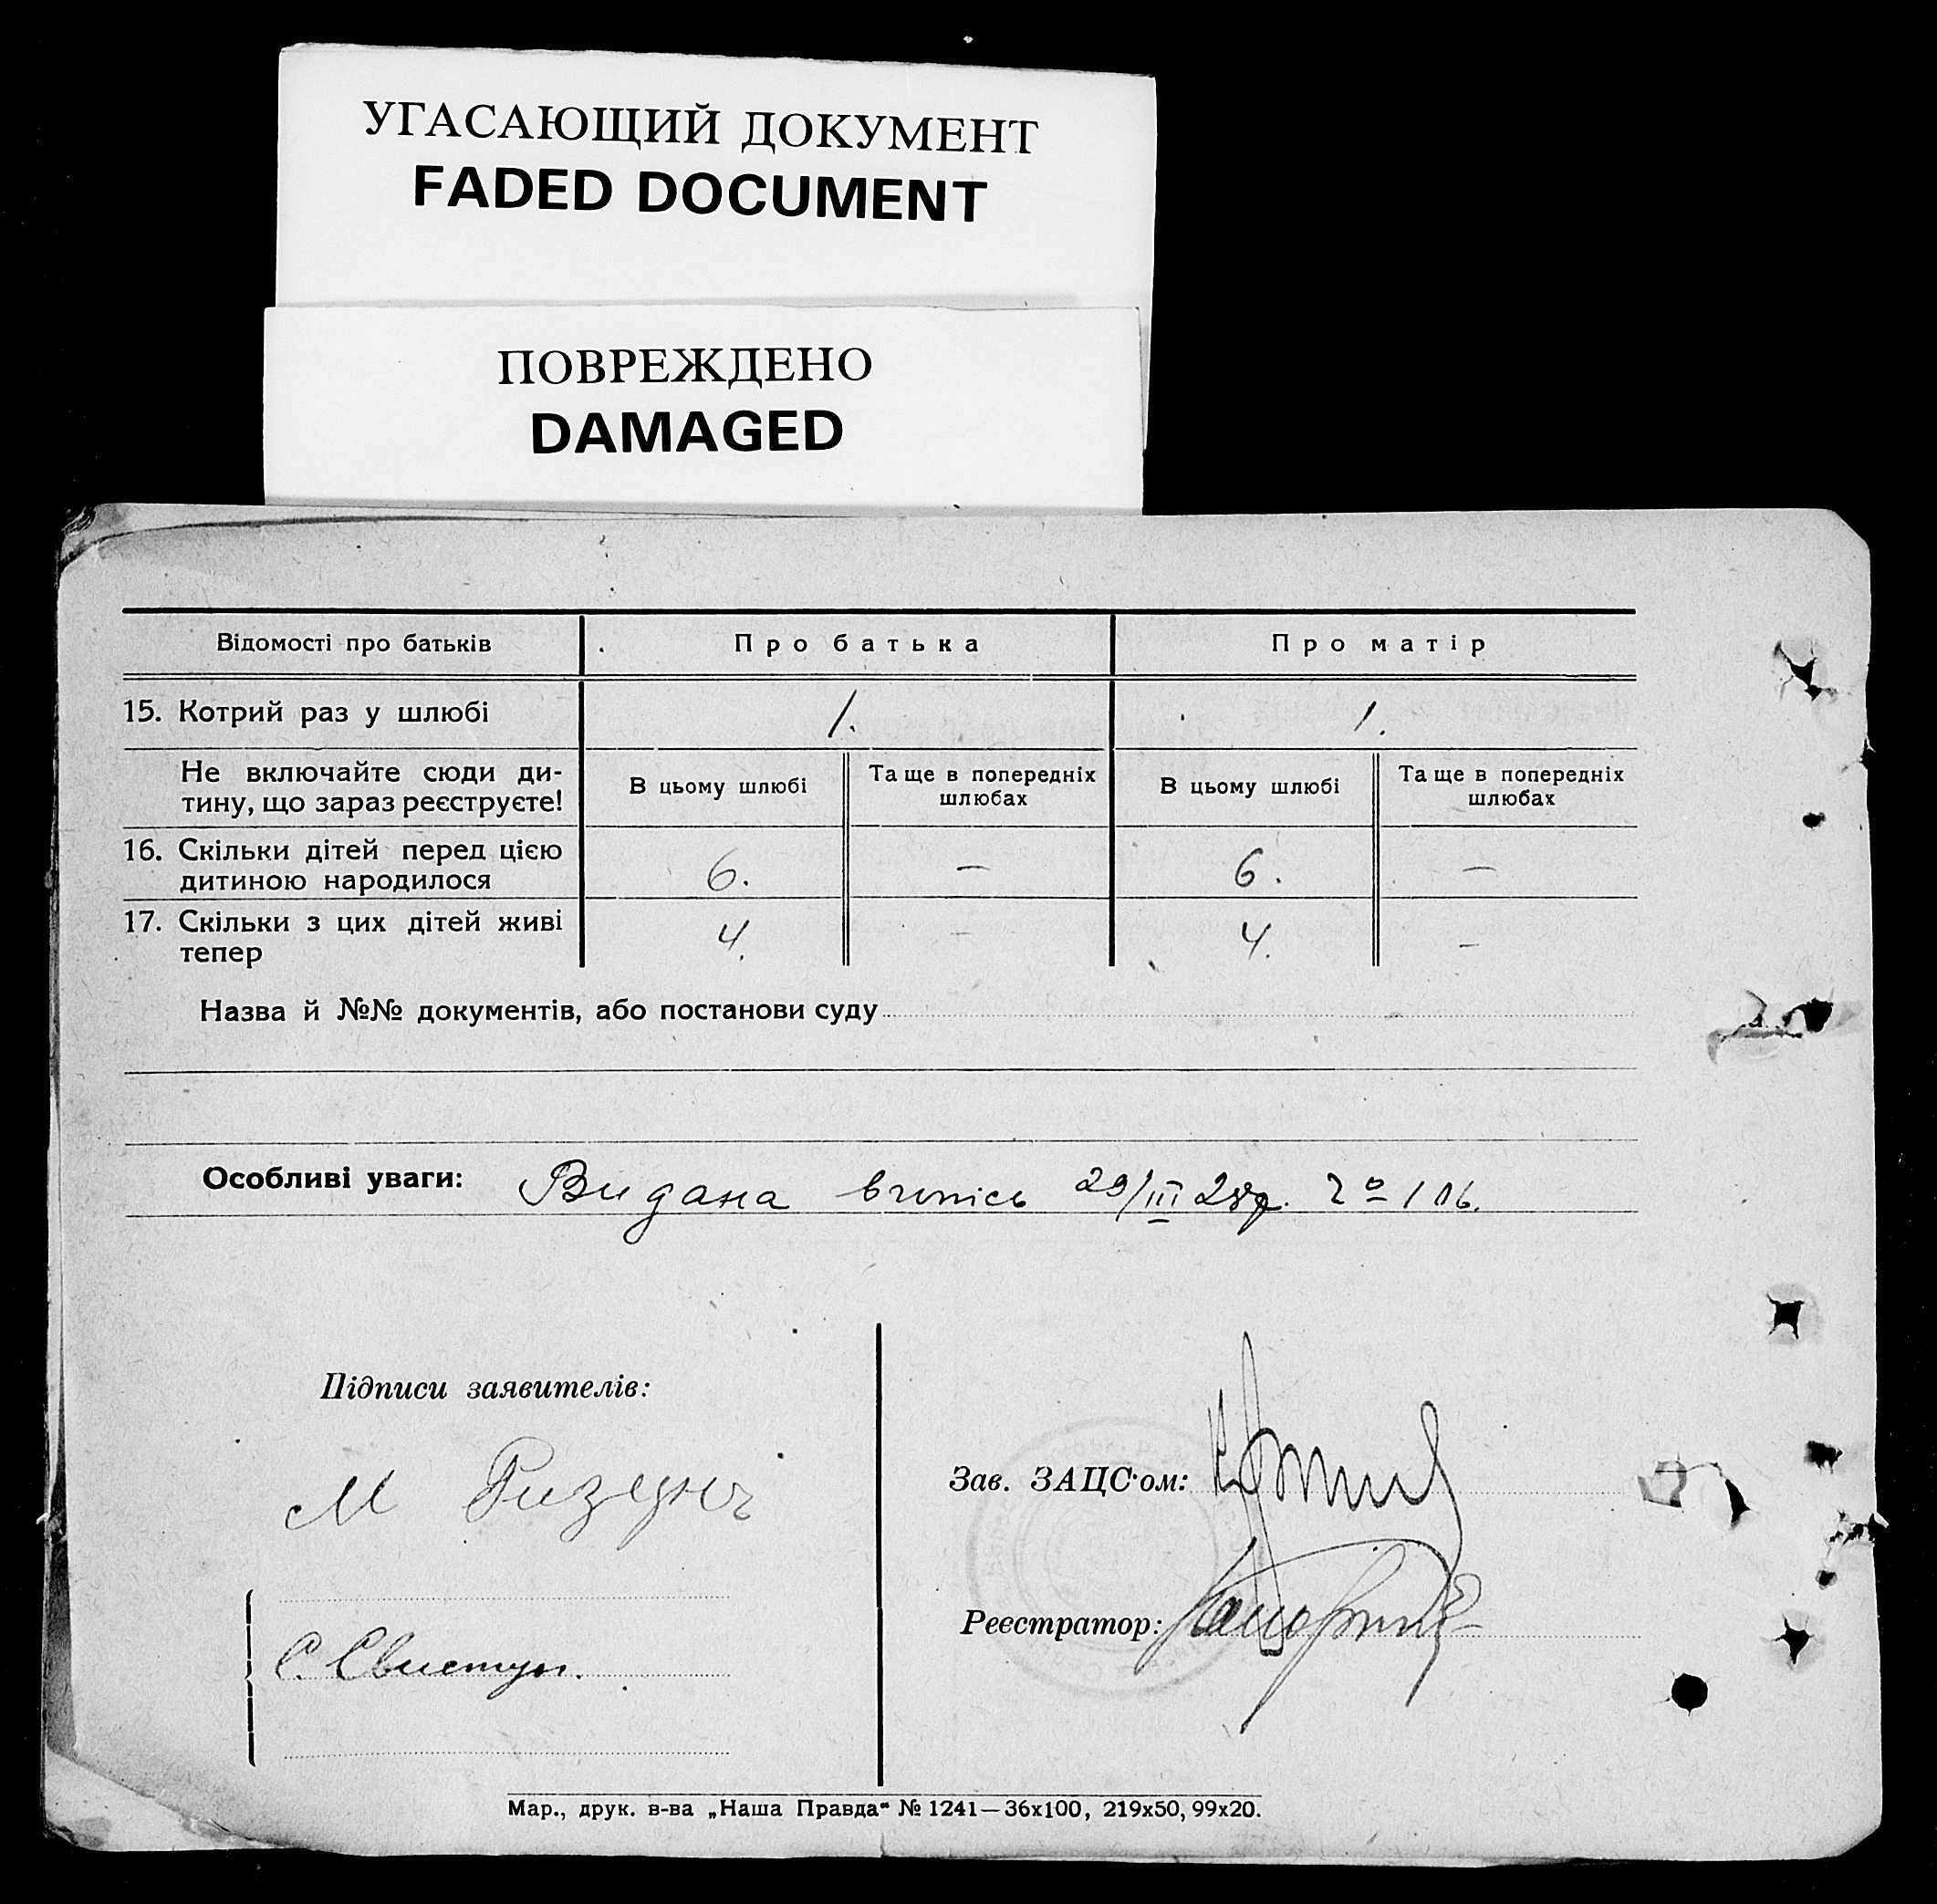 УГАСАЮЩИЙ ДОКУМЕНТ
FADED DOCUMENT
ПОВРЕЖДЕНО
DAMAGED
Відомості про батьків Про батька Про матір
15. Котрий раз у шлюбі 1. 1.
Не включайте сюди ди-
тину, що зараз реєструєте!
В цьому шлюбі
Та ще в попередніх
шлюбах
В цьому шлюбі
Та ще в попередніх
шлюбах
16. Скільки дітей перед цією
дитиною народилося
6. — 6. —
17. Скільки з цих дітей живі
тепер
4. — 4. —
Назва й №№ документів, або постанови суду
Особливі уваги: Видана випись 29/III 28р. 106.
Підписи заявителів:
М
С. Свистун.
Зав. ЗАЦС'ом:
Реєстратор:
Мар., друк. в-ва „Наша Правда“ № 1241—36х100, 219х50, 99х20.